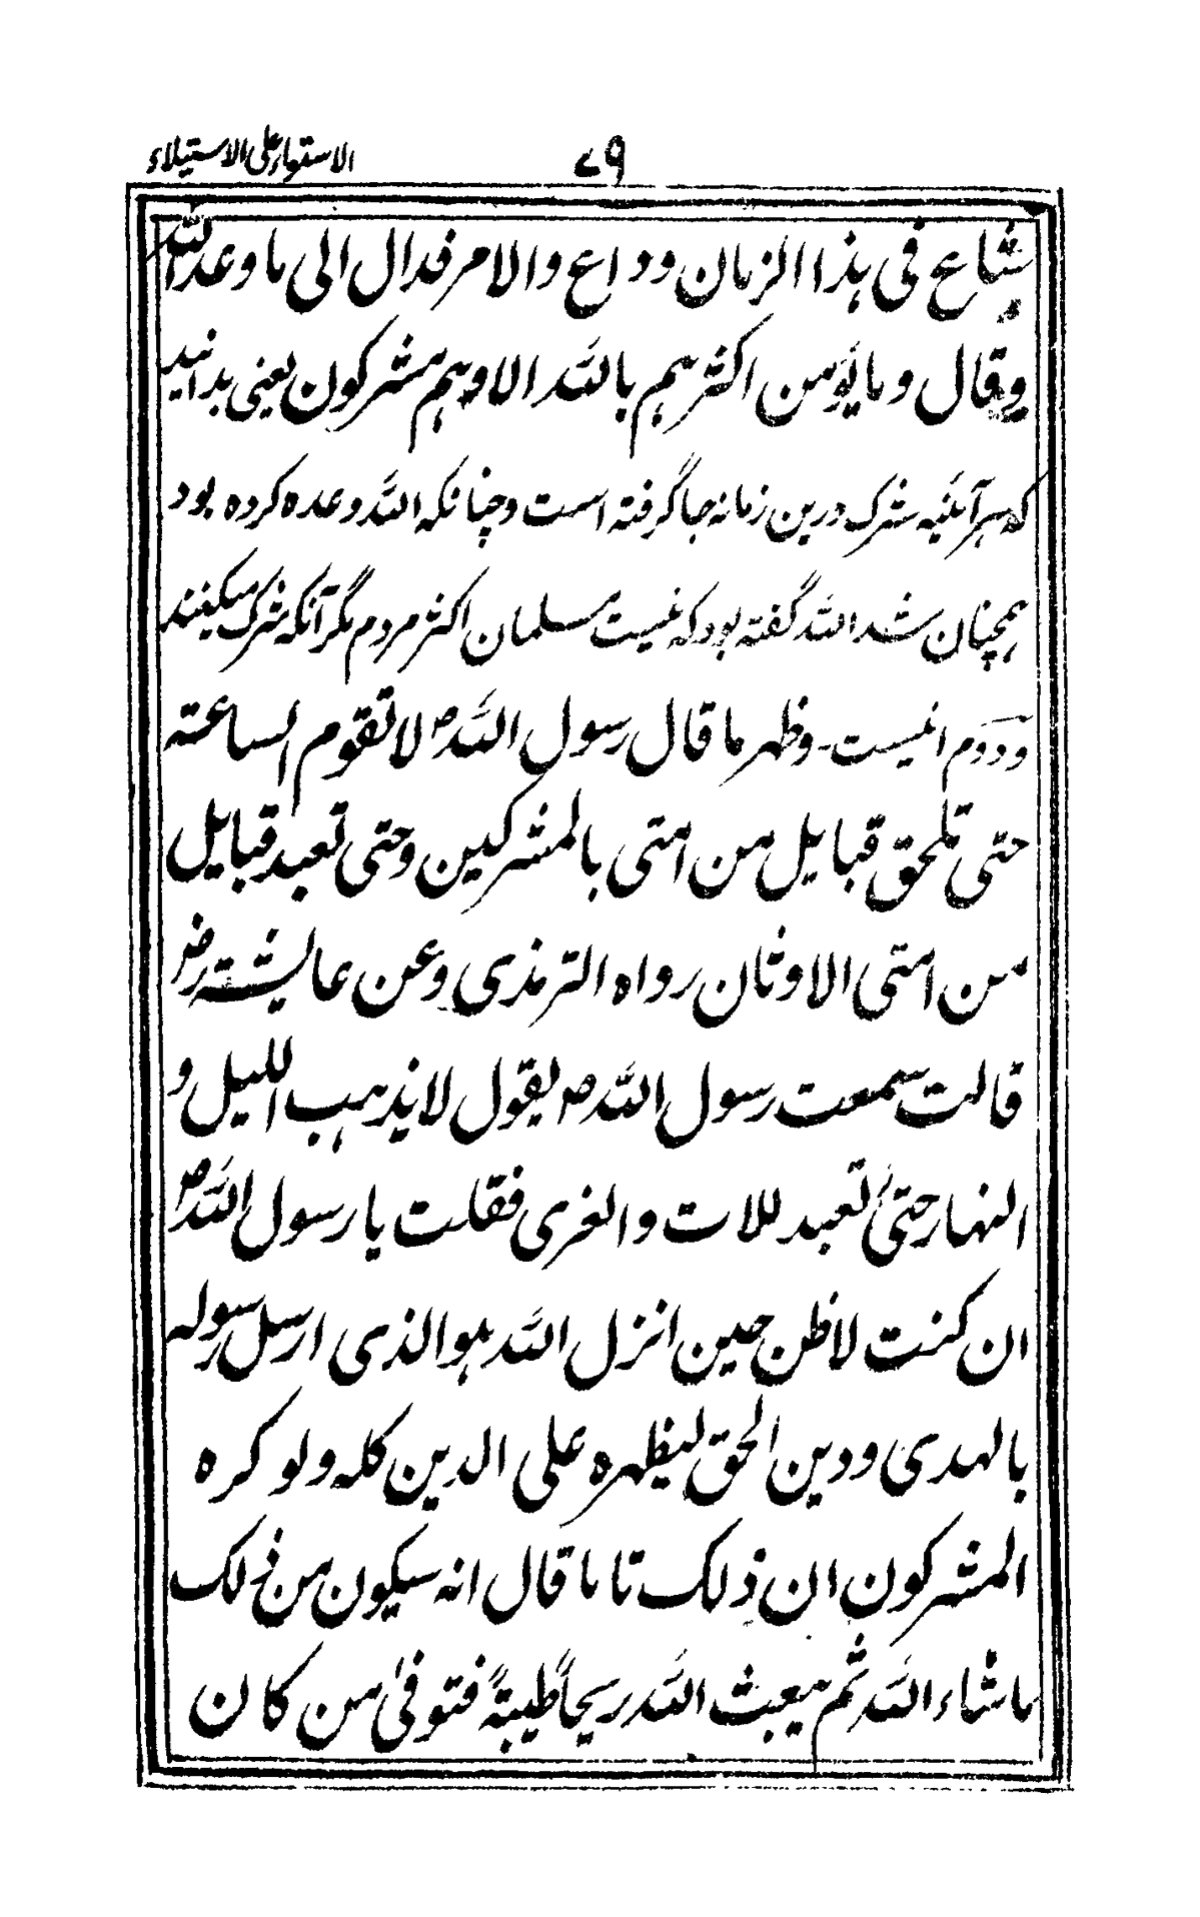 ٧٩ الاستواء على الاستيلاء
شاع فی ہذا الزمان وداع والامر قدال الی ما وعد اللہ
وقال وما یؤمن اکثرہم باللہ الا وہم مشرکون یعنی بدانید
کہ ہر آئینہ شرک درین زمانہ جا گرفتہ است و چنانکہ اللہ وعدہ کردہ بود
ہمچنان شد اللہ گفتہ بود کہ نیست مسلمان اکثر مردم مگر آنکہ شرک میکنند
وظہر ما قال رسول اللہ ص لا تقوم الساعتہ
حتی تلحق قبایل من امتی بالمشرکین وحتی تعبد قبایل
من امتی الاوثان رواہ الترمذی وعن عایشتہ رض
قالت سمعت رسول اللہ ص یقول لا یذہب اللیل و
النہار حتیٰ تعبد للات والعزی فقلت یا رسول اللہ ص
ان کنت لاظن حین انزل اللہ ہو الذی ارسل رسولہ
بالہدی ودین الحق لیظہرہ علی الدین کلہ ولو کرہ
المشرکون ان ذلک تاما قال انہ سیکون من ذلک
ما شاء اللہ ثم یبعث اللہ ریحاً طیبةً فتوفیٰ من کان